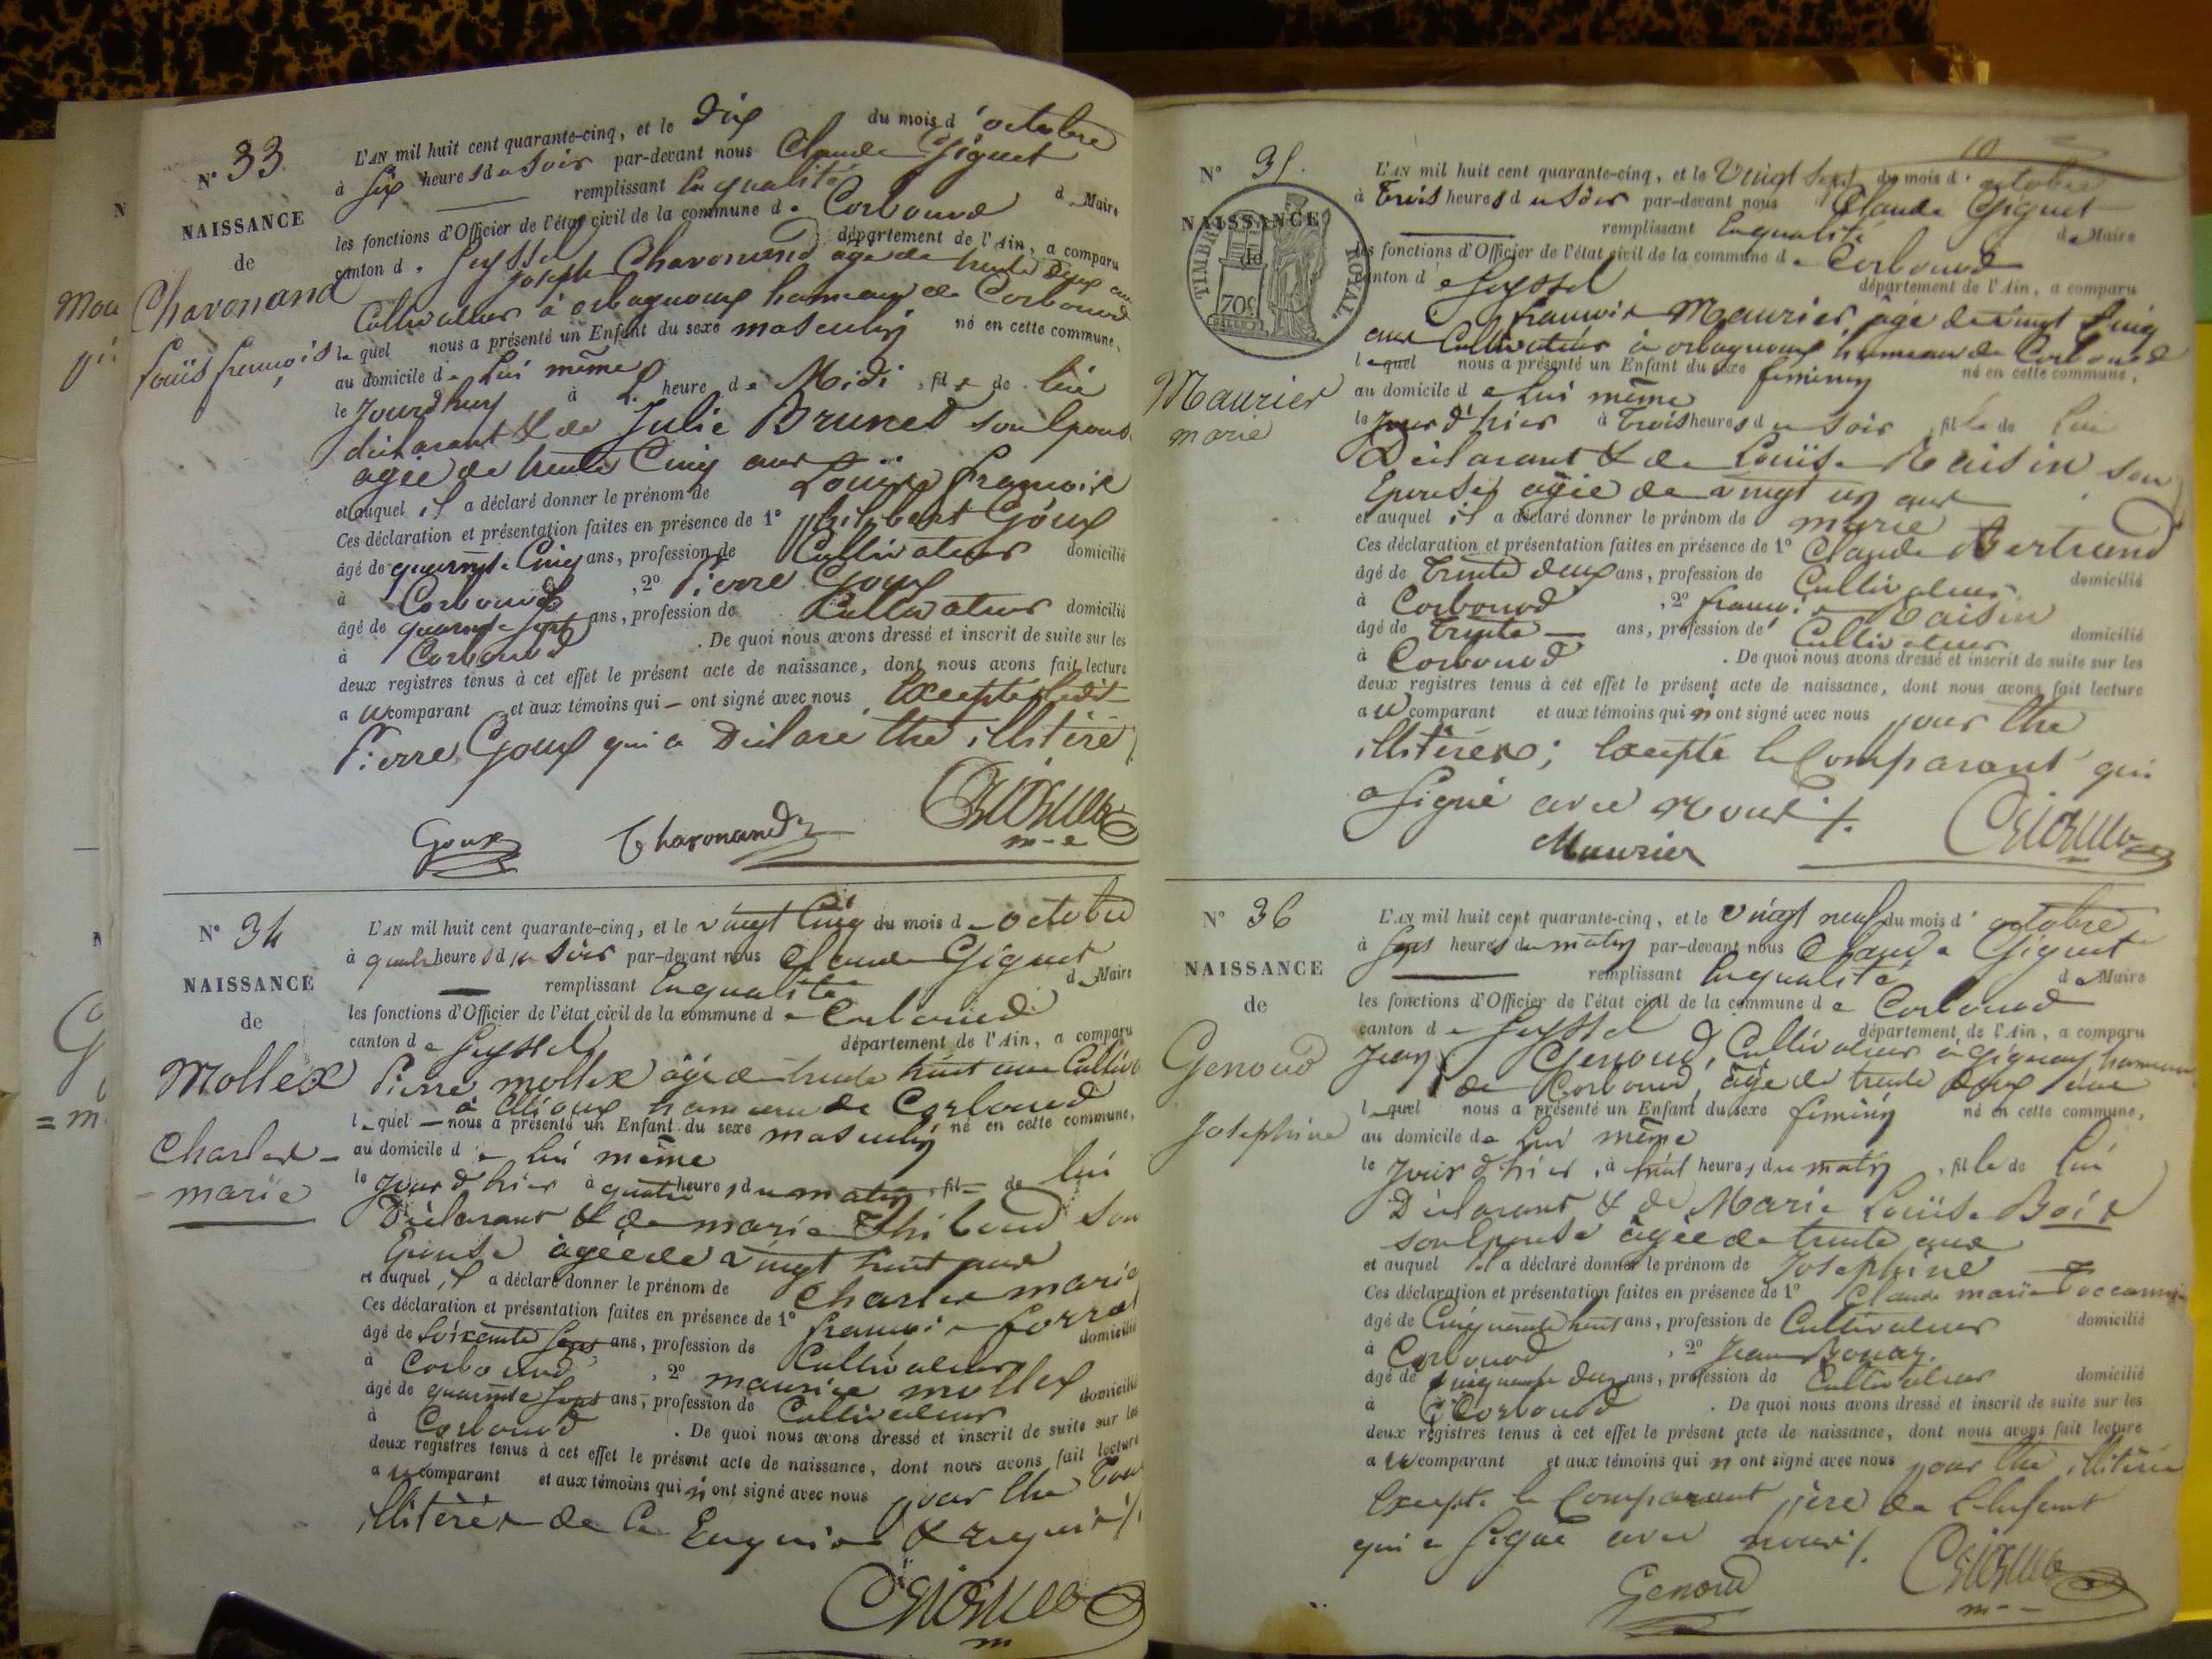 N° 33
NAISSANCE
de
Chavonand
Louis françois
L'AN mil huit cent quarante-cinq, et le Dix du mois d'octobre
à Six heures du Soir par-devant nous Claude Giguet
remplissant la qualité de Maire
les fonctions d'Officier de l'état civil de la commune de Corbonod
canton de Seyssel département de l'Ain, a comparu
Joseph Chavonand âgé de trente Deux ans
Cultivateur à orbagnoux hameau de Corbonod
lequel nous a présenté un Enfant du sexe masculin né en cette commune,
au domicile de Lui même
le Jourdhuy à L heure de Midi, fils de lui
déclarant & de Julie Brunet son Epouse
agée de trente Cinq ans
et auquel il a déclaré donner le prénom de Louis françois
Ces déclaration et présentation faites en présence de 1° philibert Goux
âgé de quarante Cinq ans, profession de Cultivateur domicilié
à Corbonod, 2° Pierre Goux
âgé de quarante sept ans, profession de Cultivateur domicilié
à Corbonod. De quoi nous avons dressé et inscrit de suite sur les
deux registres tenus à cet effet le présent acte de naissance, dont nous avons fait lecture
au comparant et aux témoins qui – ont signé avec nous Excepté ledit
Pierre Goux qui a Déclaré être illitéré
Goux Chavonand
N° 34
NAISSANCE
de
Mollex
Charles –
– marie
L'AN mil huit cent quarante-cinq, et le vingt Cinq du mois d'octobre
à quatre heures du Soir par-devant nous Claude Giguet
remplissant la qualité de Maire
les fonctions d'Officier de l'état civil de la commune de Corbonod
canton de Seyssel département de l'Ain, a comparu
Pierre mollex âgé de trente huit ans Cultiv
à hameau de Corbonod
lequel – nous a présenté un Enfant du sexe masculin né en cette commune,
au domicile de Lui même
le Jour d'hier à quatre heures du matin, fils de lui
Déclarant & de marie Thiboud son
Epouse âgée de vingt huit ans
et auquel il a déclaré donner le prénom de Charles marie
Ces déclaration et présentation faites en présence de 1° françois
âgé de Soixante sept ans, profession de Cultivateur domicilié
à Corbonod, 2° maurice mollex
âgé de quarante sept ans, profession de Cultivateur domicilié
à Corbonod. De quoi nous avons dressé et inscrit de suite sur les
deux registres tenus à cet effet le présent acte de naissance, dont nous avons fait lecture
au comparant et aux témoins qui n'ont signé avec nous pour être Tous
illitérés de ce Enquis & requis
N° 35.
NAISSANCE
de
TIMBRE ROYAL
70c
Maurier
marie
10
L'AN mil huit cent quarante-cinq, et le Vingt Sept du mois d'octobre
à Trois heures du Soir par-devant nous Claude Giguet
remplissant la qualité de Maire
les fonctions d'Officier de l'état civil de la commune de Corbonod
canton de Seyssel département de l'Ain, a comparu
françois Maurier, âgé de vingt Cinq
ans Cultivateur à orbagnoux hameau de Corbonod
lequel nous a présenté un Enfant du sexe féminin né en cette commune,
au domicile de Lui même
le Jour d'hier à Trois heures du Soir, fille de lui
Déclarant & de Louise Raisin son
Epouse, agée de vingt un ans
et auquel il a déclaré donner le prénom de marie
Ces déclaration et présentation faites en présence de 1° Claude Bertrand
âgé de Trente deux ans, profession de Cultivateur domicilié
à Corbonod, 2° françois Raisin
âgé de Trente – ans, profession de Cultivateur domicilié
à Corbonod. De quoi nous avons dressé et inscrit de suite sur les
deux registres tenus à cet effet le présent acte de naissance, dont nous avons fait lecture
au comparant et aux témoins qui n'ont signé avec nous pour être
illitérés; Excepté le Comparant qui
a signé avec nous
Maurier
N° 36
NAISSANCE
de
Genoud
Josephine
L'AN mil huit cent quarante-cinq, et le vingt neuf du mois d'octobre
à Sept heures du matin par-devant nous Claude Giguet
remplissant la qualité de Maire
les fonctions d'Officier de l'état civil de la commune de Corbonod
canton de Seyssel département de l'Ain, a comparu
Jean Genoud, Cultivateur à Gignay hameau
de Corbonod, âgé de trente Deux ans
lequel nous a présenté un Enfant du sexe féminin né en cette commune,
au domicile de Lui même
le Jour d'hier, à huit heures du matin, fille de lui
Déclarant & de Marie Louise Bois
son Epouse âgée de trente ans
et auquel il a déclaré donner le prénom de Josephine
Ces déclaration et présentation faites en présence de 1° Claude marie
âgé de Cinquante huit ans, profession de Cultivateur domicilié
à Corbonod, 2° Jean
âgé de Cinquante Deux ans, profession de Cultivateur domicilié
à Corbonod. De quoi nous avons dressé et inscrit de suite sur les
deux registres tenus à cet effet le présent acte de naissance, dont nous avons fait lecture
au comparant et aux témoins qui n'ont signé avec nous pour être illitérés
Excepté le Comparant père de L'Enfant
qui a signé avec nous
Genoud